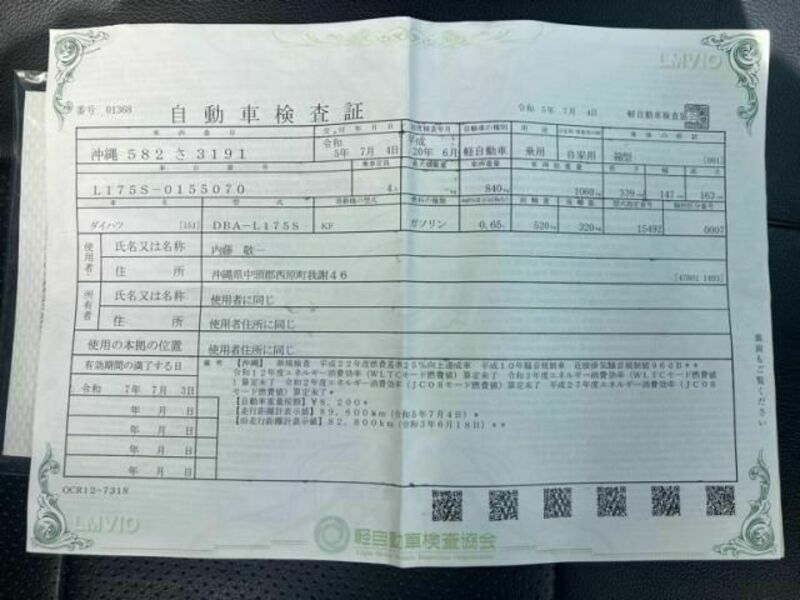 LMVIO
番号 01368
自動車検査証
令和 5年 7月 4日
軽自動車検査協
車両番号
交付年月日
初度検査年月
自動車の種別
用途
車体の形状
沖縄 582 さ 3191
令和 5年 7月 4日
平成 20年 6月
軽自動車
乗用
自家用
箱型
[001]
車台番号
乗車定員
最大積載量
車両重量
車両総重量
長さ
幅
高さ
L175S-0155070
4人
840kg
1060kg
339cm
147cm
163cm
車名
型式
原動機の型式
燃料の種類
型式指定番号
類別区分番号
ダイハツ
[151]
DBA-L175S
KF
ガソリン
0.65L
520kg
320kg
15492
0007
使用者
氏名又は名称
内藤 敬一
住所
沖縄県中頭郡西原町我謝46
所有者
氏名又は名称
使用者に同じ
住所
使用者住所に同じ
使用の本拠の位置
使用者住所に同じ
裏面もご覧ください
有効期間の満了する日
備考
令和 7年 7月 3日
年 月 日
年 月 日
年 月 日
年 月 日
【沖縄】 新規検査 平成22年度燃費基準25%向上達成車 平成10年騒音規制車 近接排気騒音規制値96dB**
令和12年度エネルギー消費効率(WLTCモード燃費値) 算定未了 令和2年度エネルギー消費効率(WLTCモード燃費値
) 算定未了 令和2年度エネルギー消費効率(JC08モード燃費値) 算定未了 平成27年度エネルギー消費効率(JC08
モード燃費値) 算定未了*
【自動車重量税額】¥8,200*
【走行距離計表示値】89,600km(令和5年7月4日)*
【旧走行距離計表示値】82,800km(令和3年6月18日)**
OCR12-7318
LMVIO
軽自動車検査協会